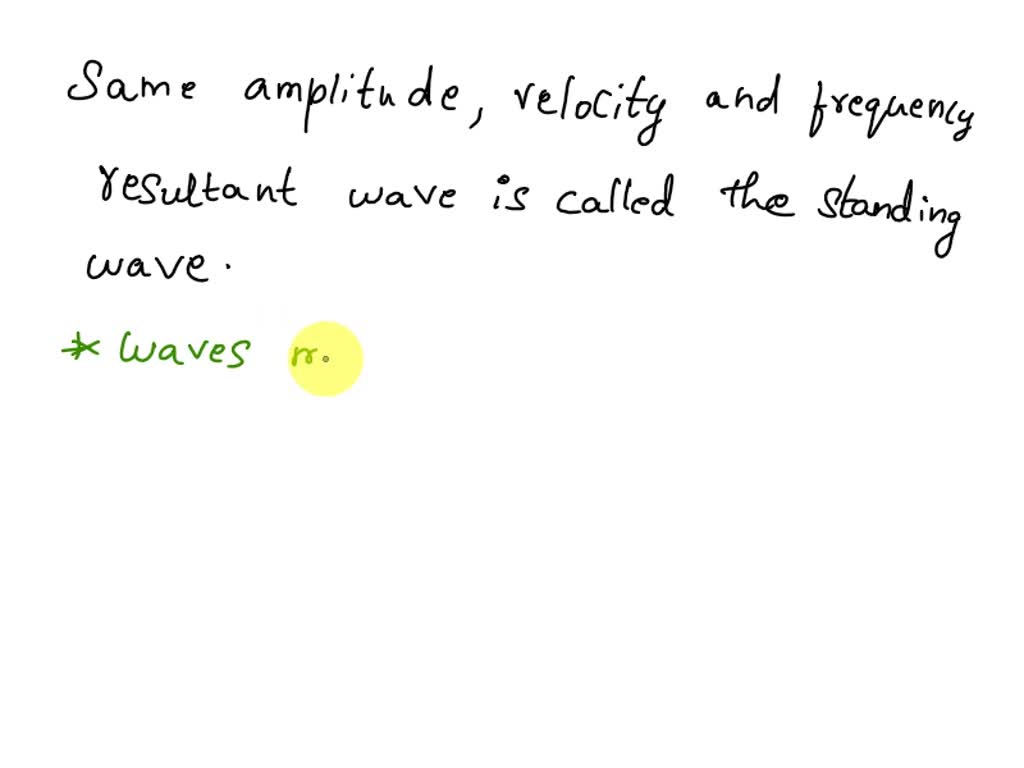 Same amplitude, velocity and frequency
resultant wave is called the standing
wave.
* waves